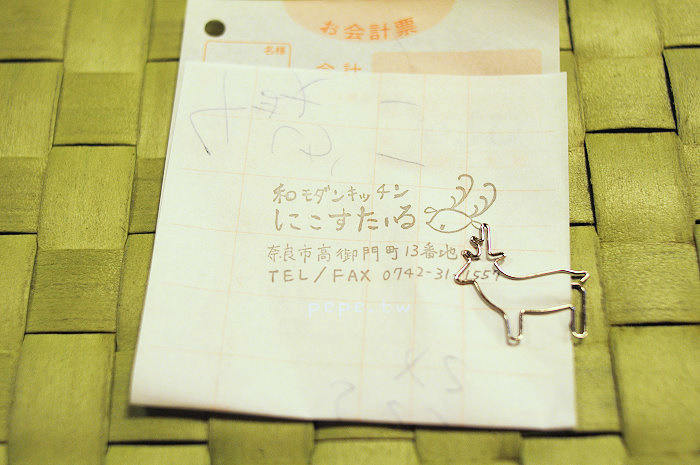 お会計票
名様
会計
和モダンキッチン
にこすたいる
奈良市高御門町13番地
TEL/FAX 0742-31-1557
pepe.tw